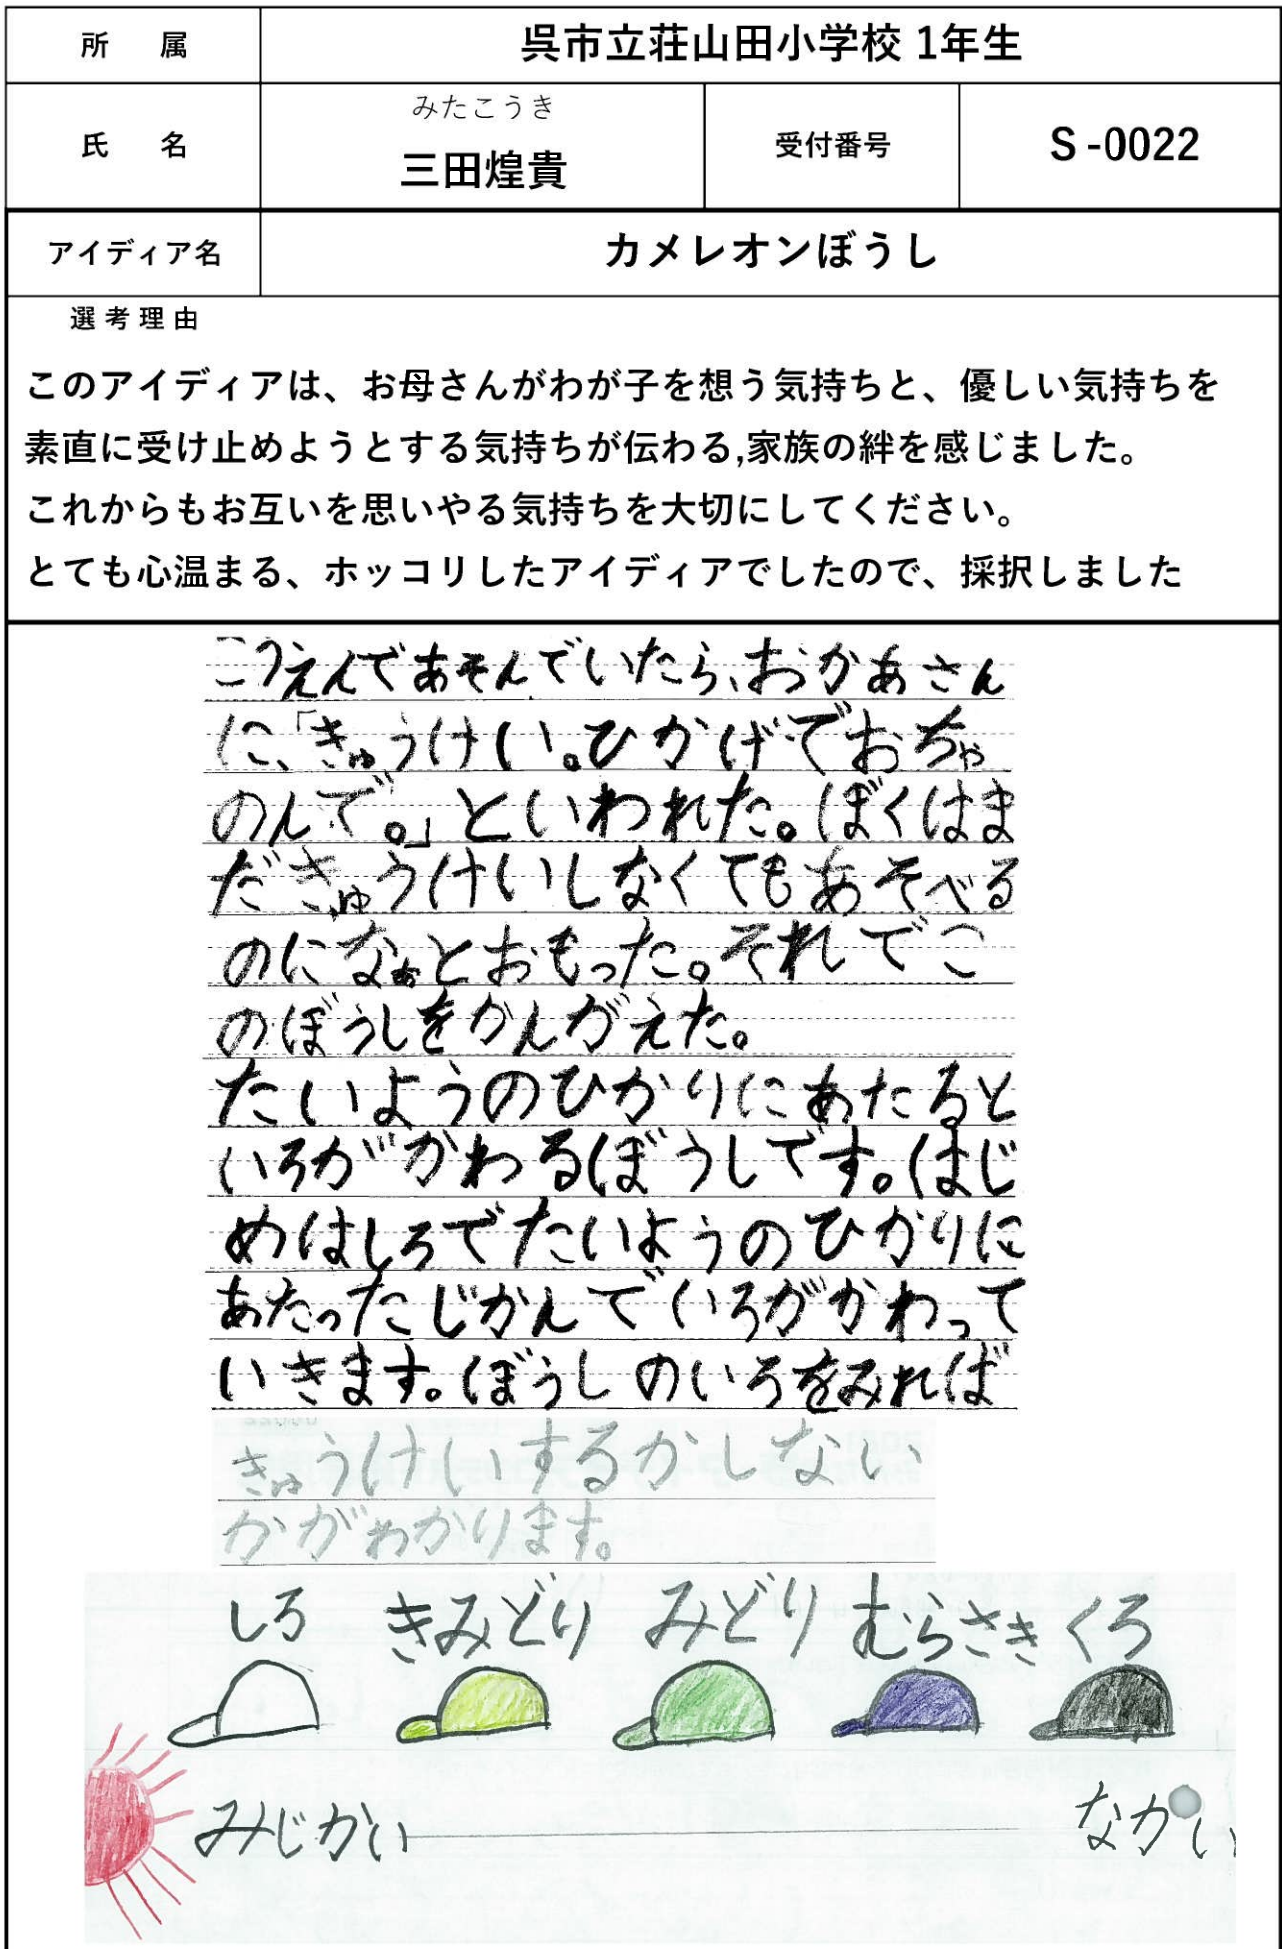 所属
呉市立荘山田小学校 1年生
氏名
みたこうき
三田煌貴
受付番号
S-0022
アイディア名
カメレオンぼうし
選考理由
このアイディアは、お母さんがわが子を想う気持ちと、優しい気持ちを
素直に受け止めようとする気持ちが伝わる,家族の絆を感じました。
これからもお互いを思いやる気持ちを大切にしてください。
とても心温まる、ホッコリしたアイディアでしたので、採択しました
こうえんであそんでいたら、おかあさん
に、「きゅうけい。ひかげでおちゃ
のんで。」といわれた。ぼくはま
だきゅうけいしなくてもあそべる
のになぁとおもった。それでこ
のぼうしをかんがえた。
たいようのひかりにあたると
いろがかわるぼうしです。はじ
めはしろでたいようのひかりに
あたったじかんでいろがかわって
いきます。ぼうしのいろをみれば
きゅうけいするかしない
かがわかります。
しろ きみどり みどり むらさき くろ
みじかい ながい